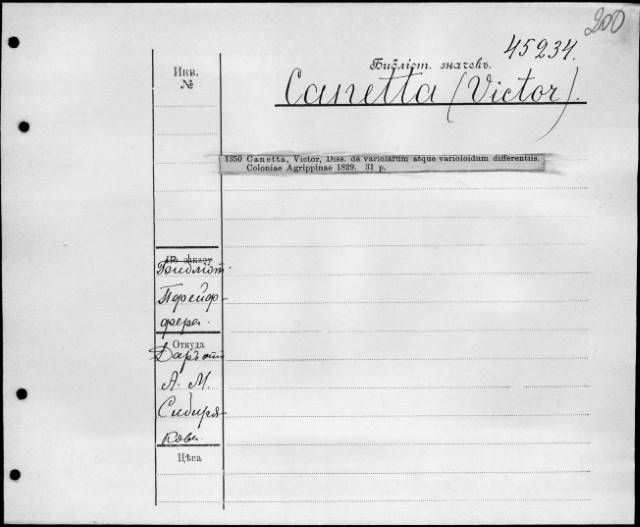 200
45234.
Библіот. значекъ.
Инв.
№
Canetta (Victor).
1350 Canetta, Victor, Diss. de variolarum atque varioloidum differentiis.
Coloniae Agrippinae 1829. 31 p.
№ заказу
Библіот.
Пфейф-
фера.
Откуда
Даръ отъ
А. М.
Сибиря-
кова.
Цѣна